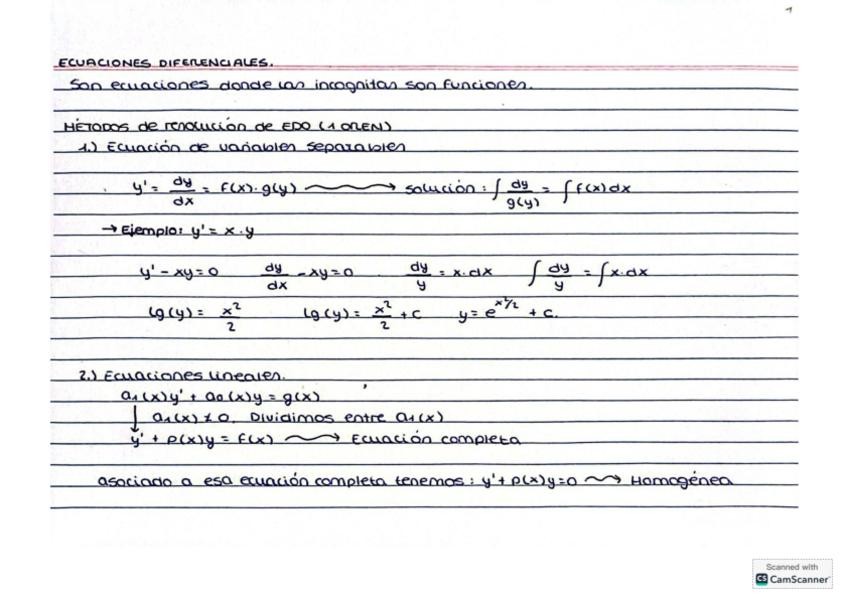 1
ECUACIONES DIFERENCIALES.
Son ecuaciones donde las incognitas son funciones.
MÉTODOS de resolución de EDO (1 OREN)
1.) Ecuación de variables separables
y' = dy/dx = f(x)·g(y) ⟿ solución: ∫ dy/g(y) = ∫ f(x)dx
→ Ejemplo: y' = x·y
y' - xy = 0 dy/dx - xy = 0 dy/y = x·dx ∫ dy/y = ∫ x·dx
lg(y) = x²/2 lg(y) = x²/2 + c y = e^(x²/2) + c.
2.) Ecuaciones lineales.
a₁(x)y' + a₀(x)y = g(x)
↓ a₁(x) ≠ 0. Dividimos entre a₁(x)
y' + p(x)y = f(x) ⟿ Ecuación completa
asociado a esa ecuación completa tenemos: y' + p(x)y=0 ⟿ Homogénea
Scanned with
CS CamScanner